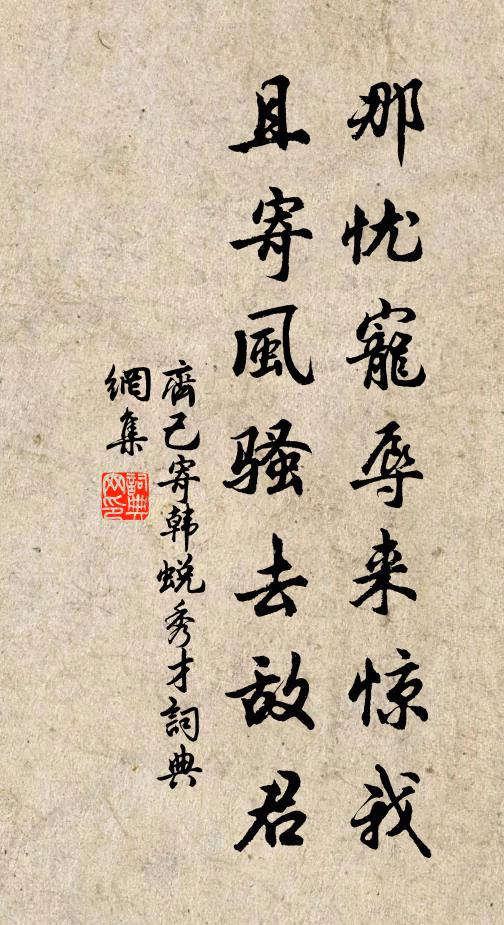 那忧寵辱来惊我
且寄風骚去敌君
齊己寄韩蜕秀才詞典
網集
詞典
网印